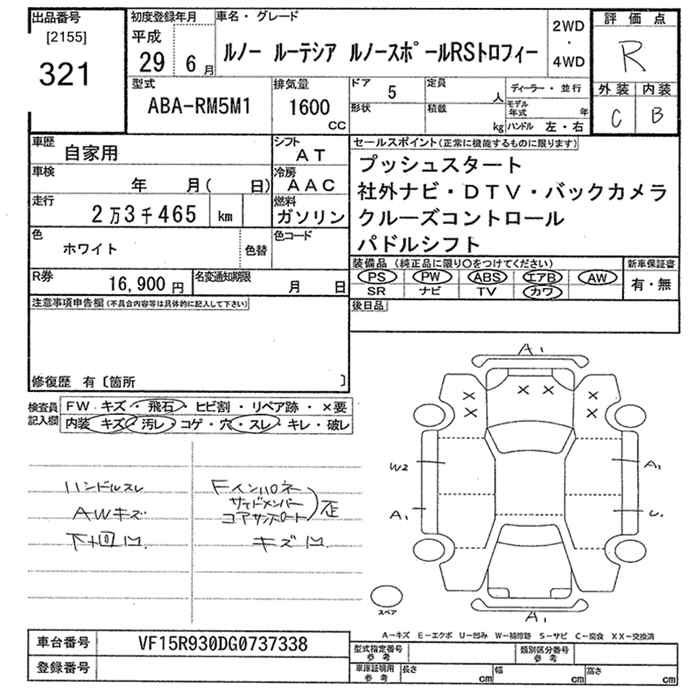 出品番号
[2155]
321
初度登録年月
平成
29 6月
車名・グレード
ルノー ルーテシア ルノースポールRSトロフィー
2WD
・
4WD
評価点
R
外装 内装
C B
型式
ABA-RM5M1
排気量
1600
CC
ドア
5
形状
定員
人
積載
kg
ディーラー・並行
モデル年式 年
ハンドル 左・右
車歴
自家用
シフト
AT
車検
年 月( 日)
冷房
AAC
走行
2万3千465 km
燃料
ガソリン
色
ホワイト
色替
色コード
R券
16,900円
名変通知期限
月 日
セールスポイント(正常に機能するものに限ります)
プッシュスタート
社外ナビ・DTV・バックカメラ
クルーズコントロール
パドルシフト
装備品(純正品に限り○をつけてください)
PS PW ABS エアB AW
SR ナビ TV カワ
新車保証書
有・無
後日品
注意事項申告欄(不具合内容等は具体的に記入して下さい)
修復歴 有〔箇所 〕
検査員記入欄
FW キズ・飛石・ヒビ割・リペア跡・×要
内装 キズ・汚レ・コゲ・穴・スレ・キレ・破レ
ハンドルスレ
AWキズ
下回凹
Fインパネ
サイドメンバー
コアサポート
歪
キズ凹
A1
× × × ×
× ×
W2
A1
A1
U1
A1
スペア
A-キズ E-エクボ U-凹み W-補修跡 S-サビ C-腐食 XX-交換済
車台番号
VF15R930DG0737338
登録番号
型式指定番号
参考
類別区分番号
参考
車庫証明用
参考
長さ cm
幅 cm
高さ cm